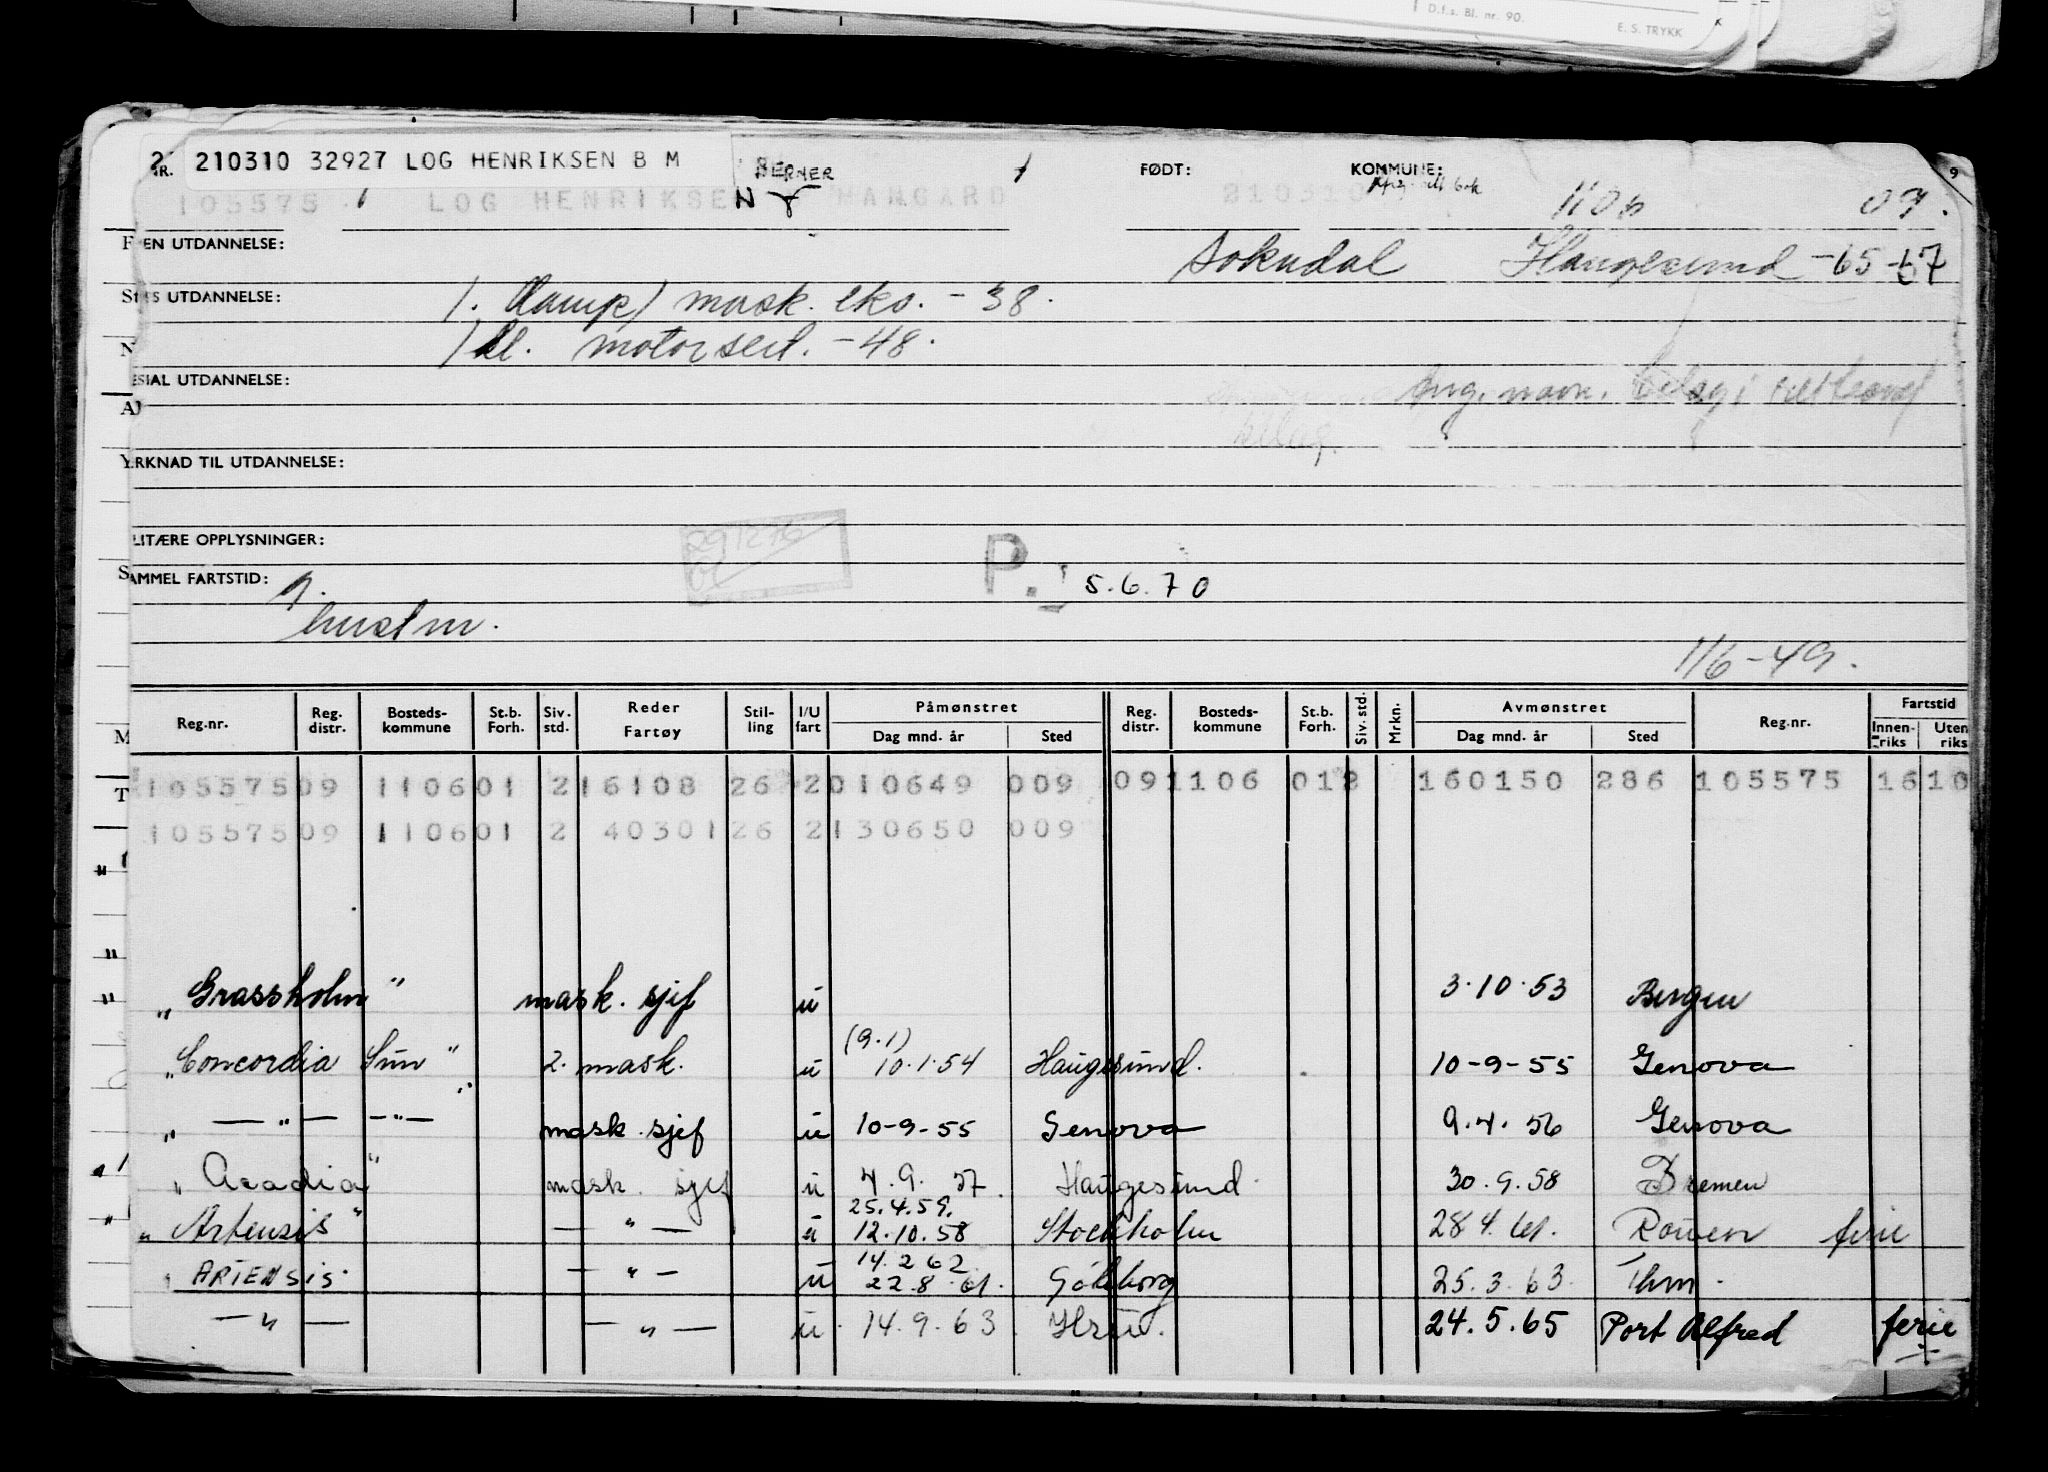 D.f.s. Bl. nr. 90.
E. S. TRYKK
210310 32927 LOG HENRIKSEN B M
BERNER
FØDT:
KOMMUNE:
105575 LOG HENRIKSEN N MANGARD 210310 1106 09.
EN UTDANNELSE:
Sokndal Haugesund -65-67
S UTDANNELSE:
1. (damp) mask. eks. - 38.
1 kl. motorsert. - 48.
SIAL UTDANNELSE:
Ang. navn.
RKNAD TIL UTDANNELSE:
LITÆRE OPPLYSNINGER:
P. 5.6.70
AMMEL FARTSTID:
hustm.
1/6-49.
Reg.nr. Reg. distr. Bosteds- kommune St.b. Forh. Siv. std. Reder Fartøy Stil- ling I/U fart Påmønstret Dag mnd. år Sted Reg. distr. Bosteds- kommune St.b. Forh. Siv. std. Mrkn. Avmønstret Dag mnd. år Sted Reg.nr. Fartstid Innen- riks Uten riks
105575 09 1106 01 2 16108 26 2 010649 009 09 1106 01 2 160150 286 105575 16 10
105575 09 1106 01 2 40301 26 2 130650 009
"Grassholm" mask. sjef u 3.10.53 Bergen
(9.1)
"Concordia Sun" 2. mask. u 10.1.54 Haugesund. 10-9-55 Genova
" — " — — " — mask. sjef u 10-9-55 Genova 9.4.56 Genova
"Acadia" mask. sjef u 4.9.57. Haugesund. 30.9.58 Bremen
25.4.59.
"Artensis" — " — u 12.10.58 Stockholm 28.4.61. Rouen ferie
14.2.62
"ARTENSIS" — " — u 22.8.61. Göteborg 25.3.63. Thm.
— " — — " — u. 14.9.63. 24.5.65 Port Alfred ferie